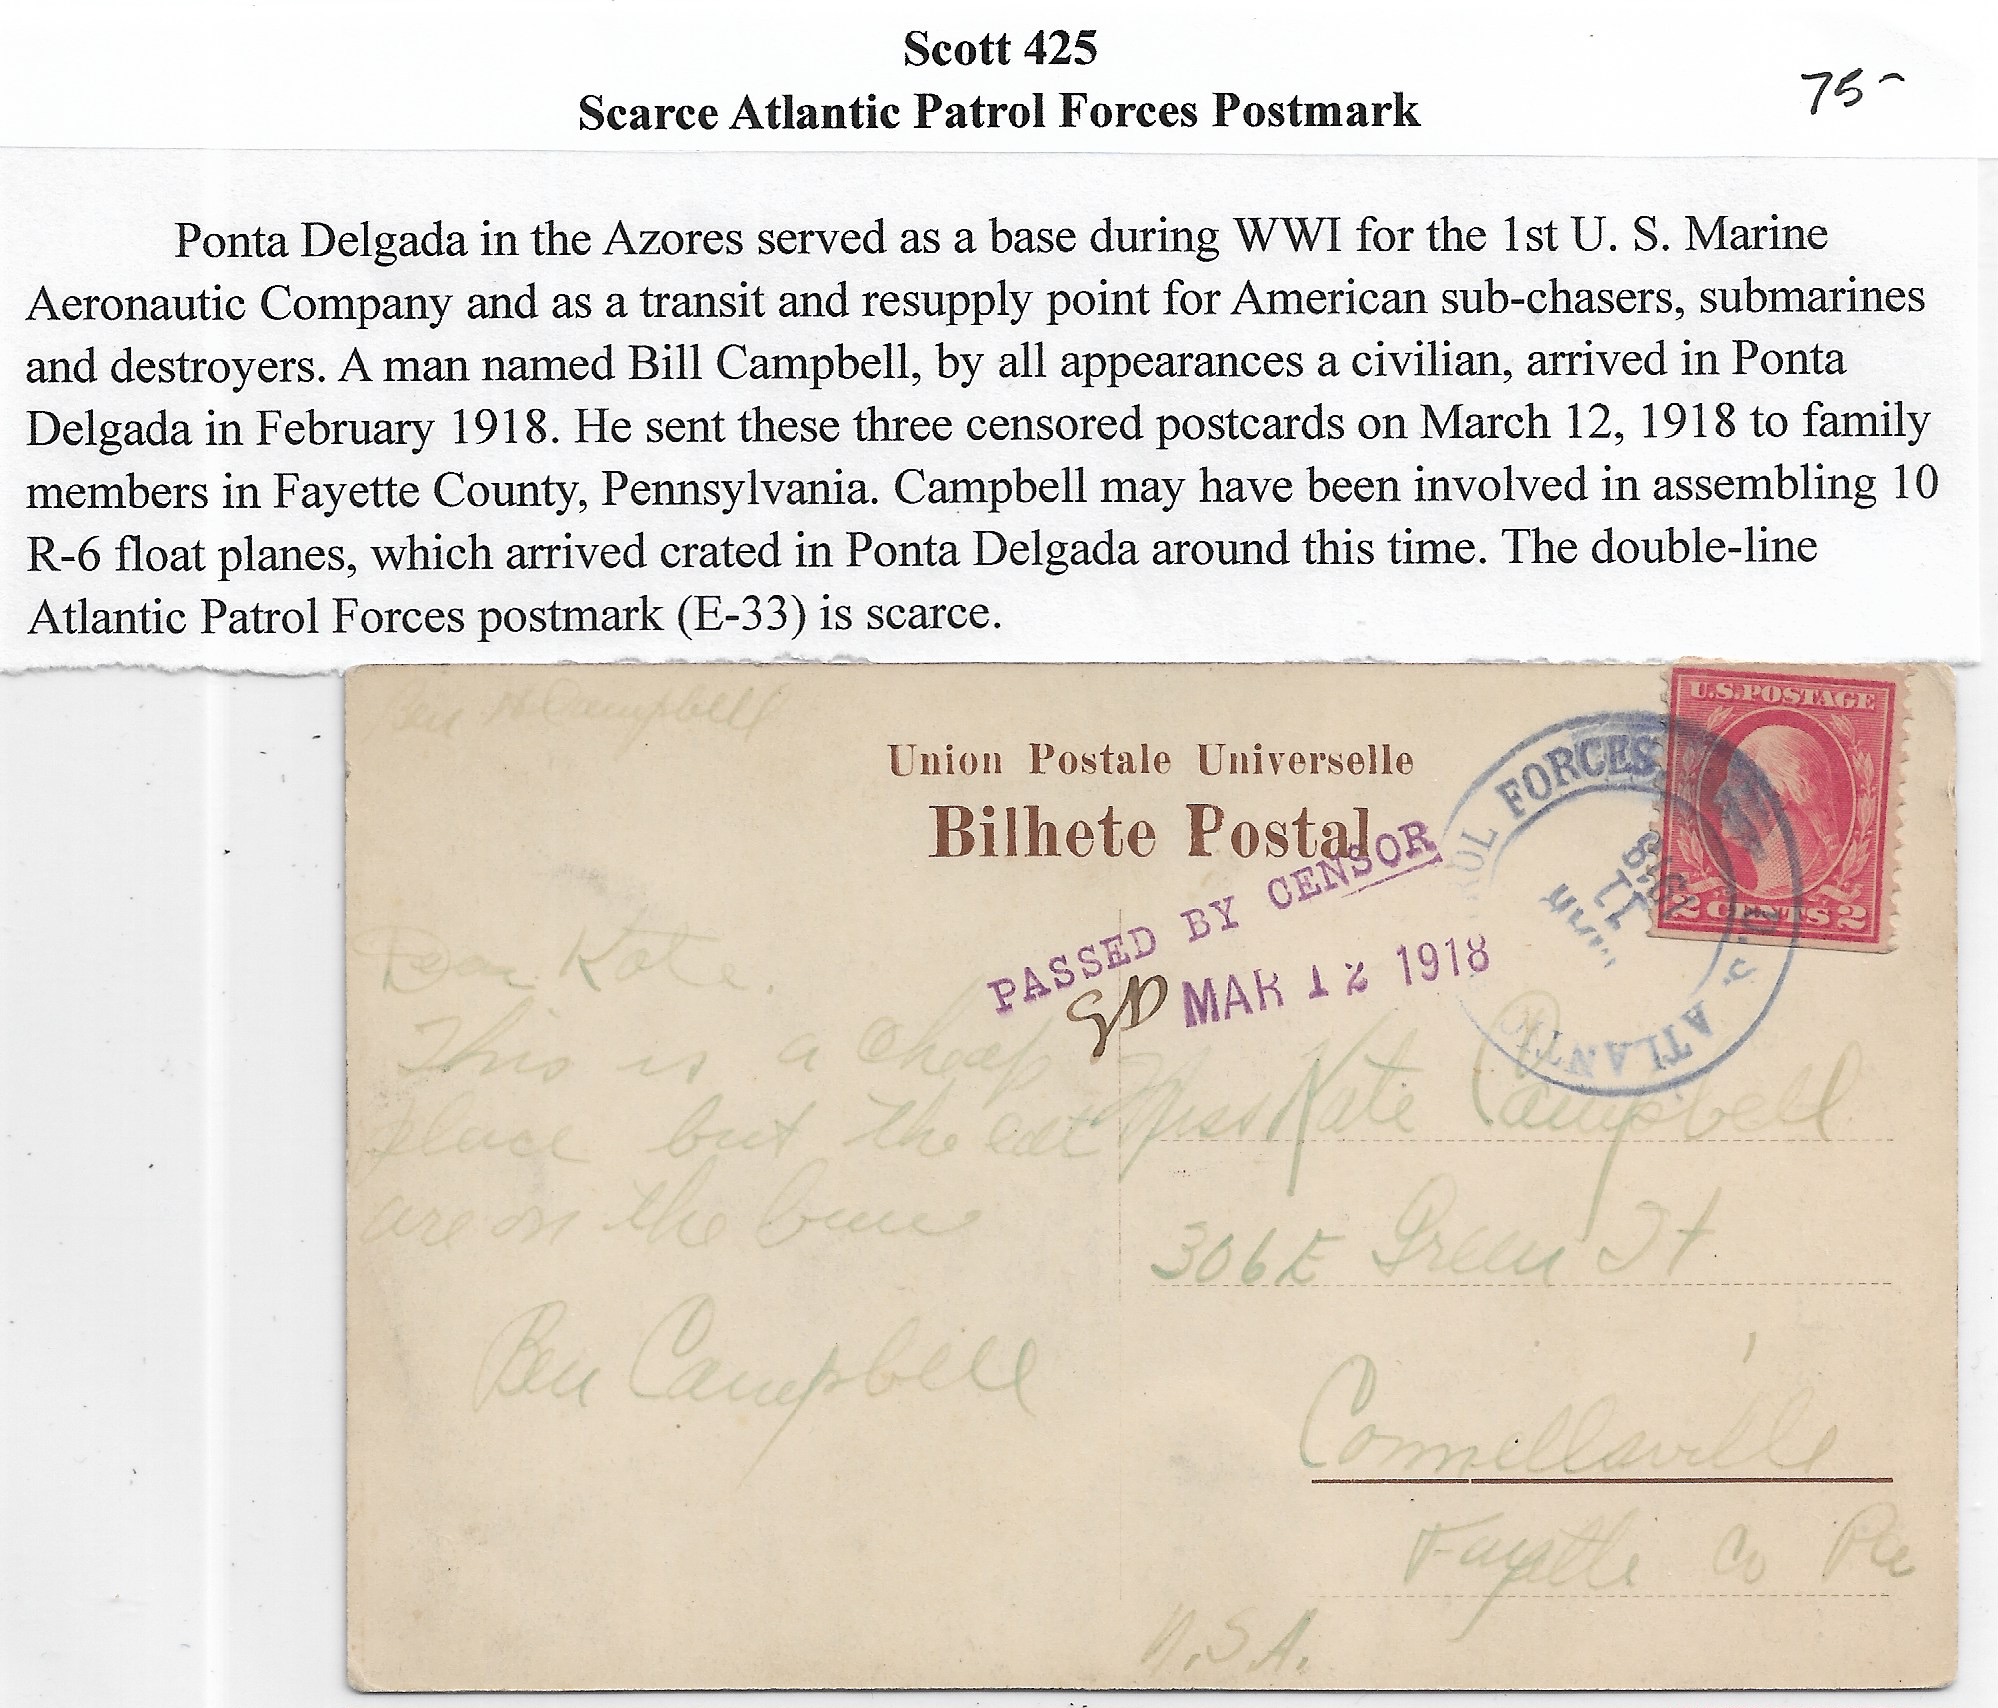 Scott 425
Scarce Atlantic Patrol Forces Postmark
75-
Ponta Delgada in the Azores served as a base during WWI for the 1st U. S. Marine
Aeronautic Company and as a transit and resupply point for American sub-chasers, submarines
and destroyers. A man named Bill Campbell, by all appearances a civilian, arrived in Ponta
Delgada in February 1918. He sent these three censored postcards on March 12, 1918 to family
members in Fayette County, Pennsylvania. Campbell may have been involved in assembling 10
R-6 float planes, which arrived crated in Ponta Delgada around this time. The double-line
Atlantic Patrol Forces postmark (E-33) is scarce.
Ben H Campbell
Union Postale Universelle
Bilhete Postal
U.S. POSTAGE
2 CENTS 2
ATLANTIC ROL FORCES
MAR
12
1918
PASSED BY CENSOR
MAR 12 1918
Dear Kate.
This is a cheap
place but the eat
are on the bum
Ben Campbell
Miss Kate Campbell
306 E Green St
Connellsville
Fayette Co Pa
U.S.A.